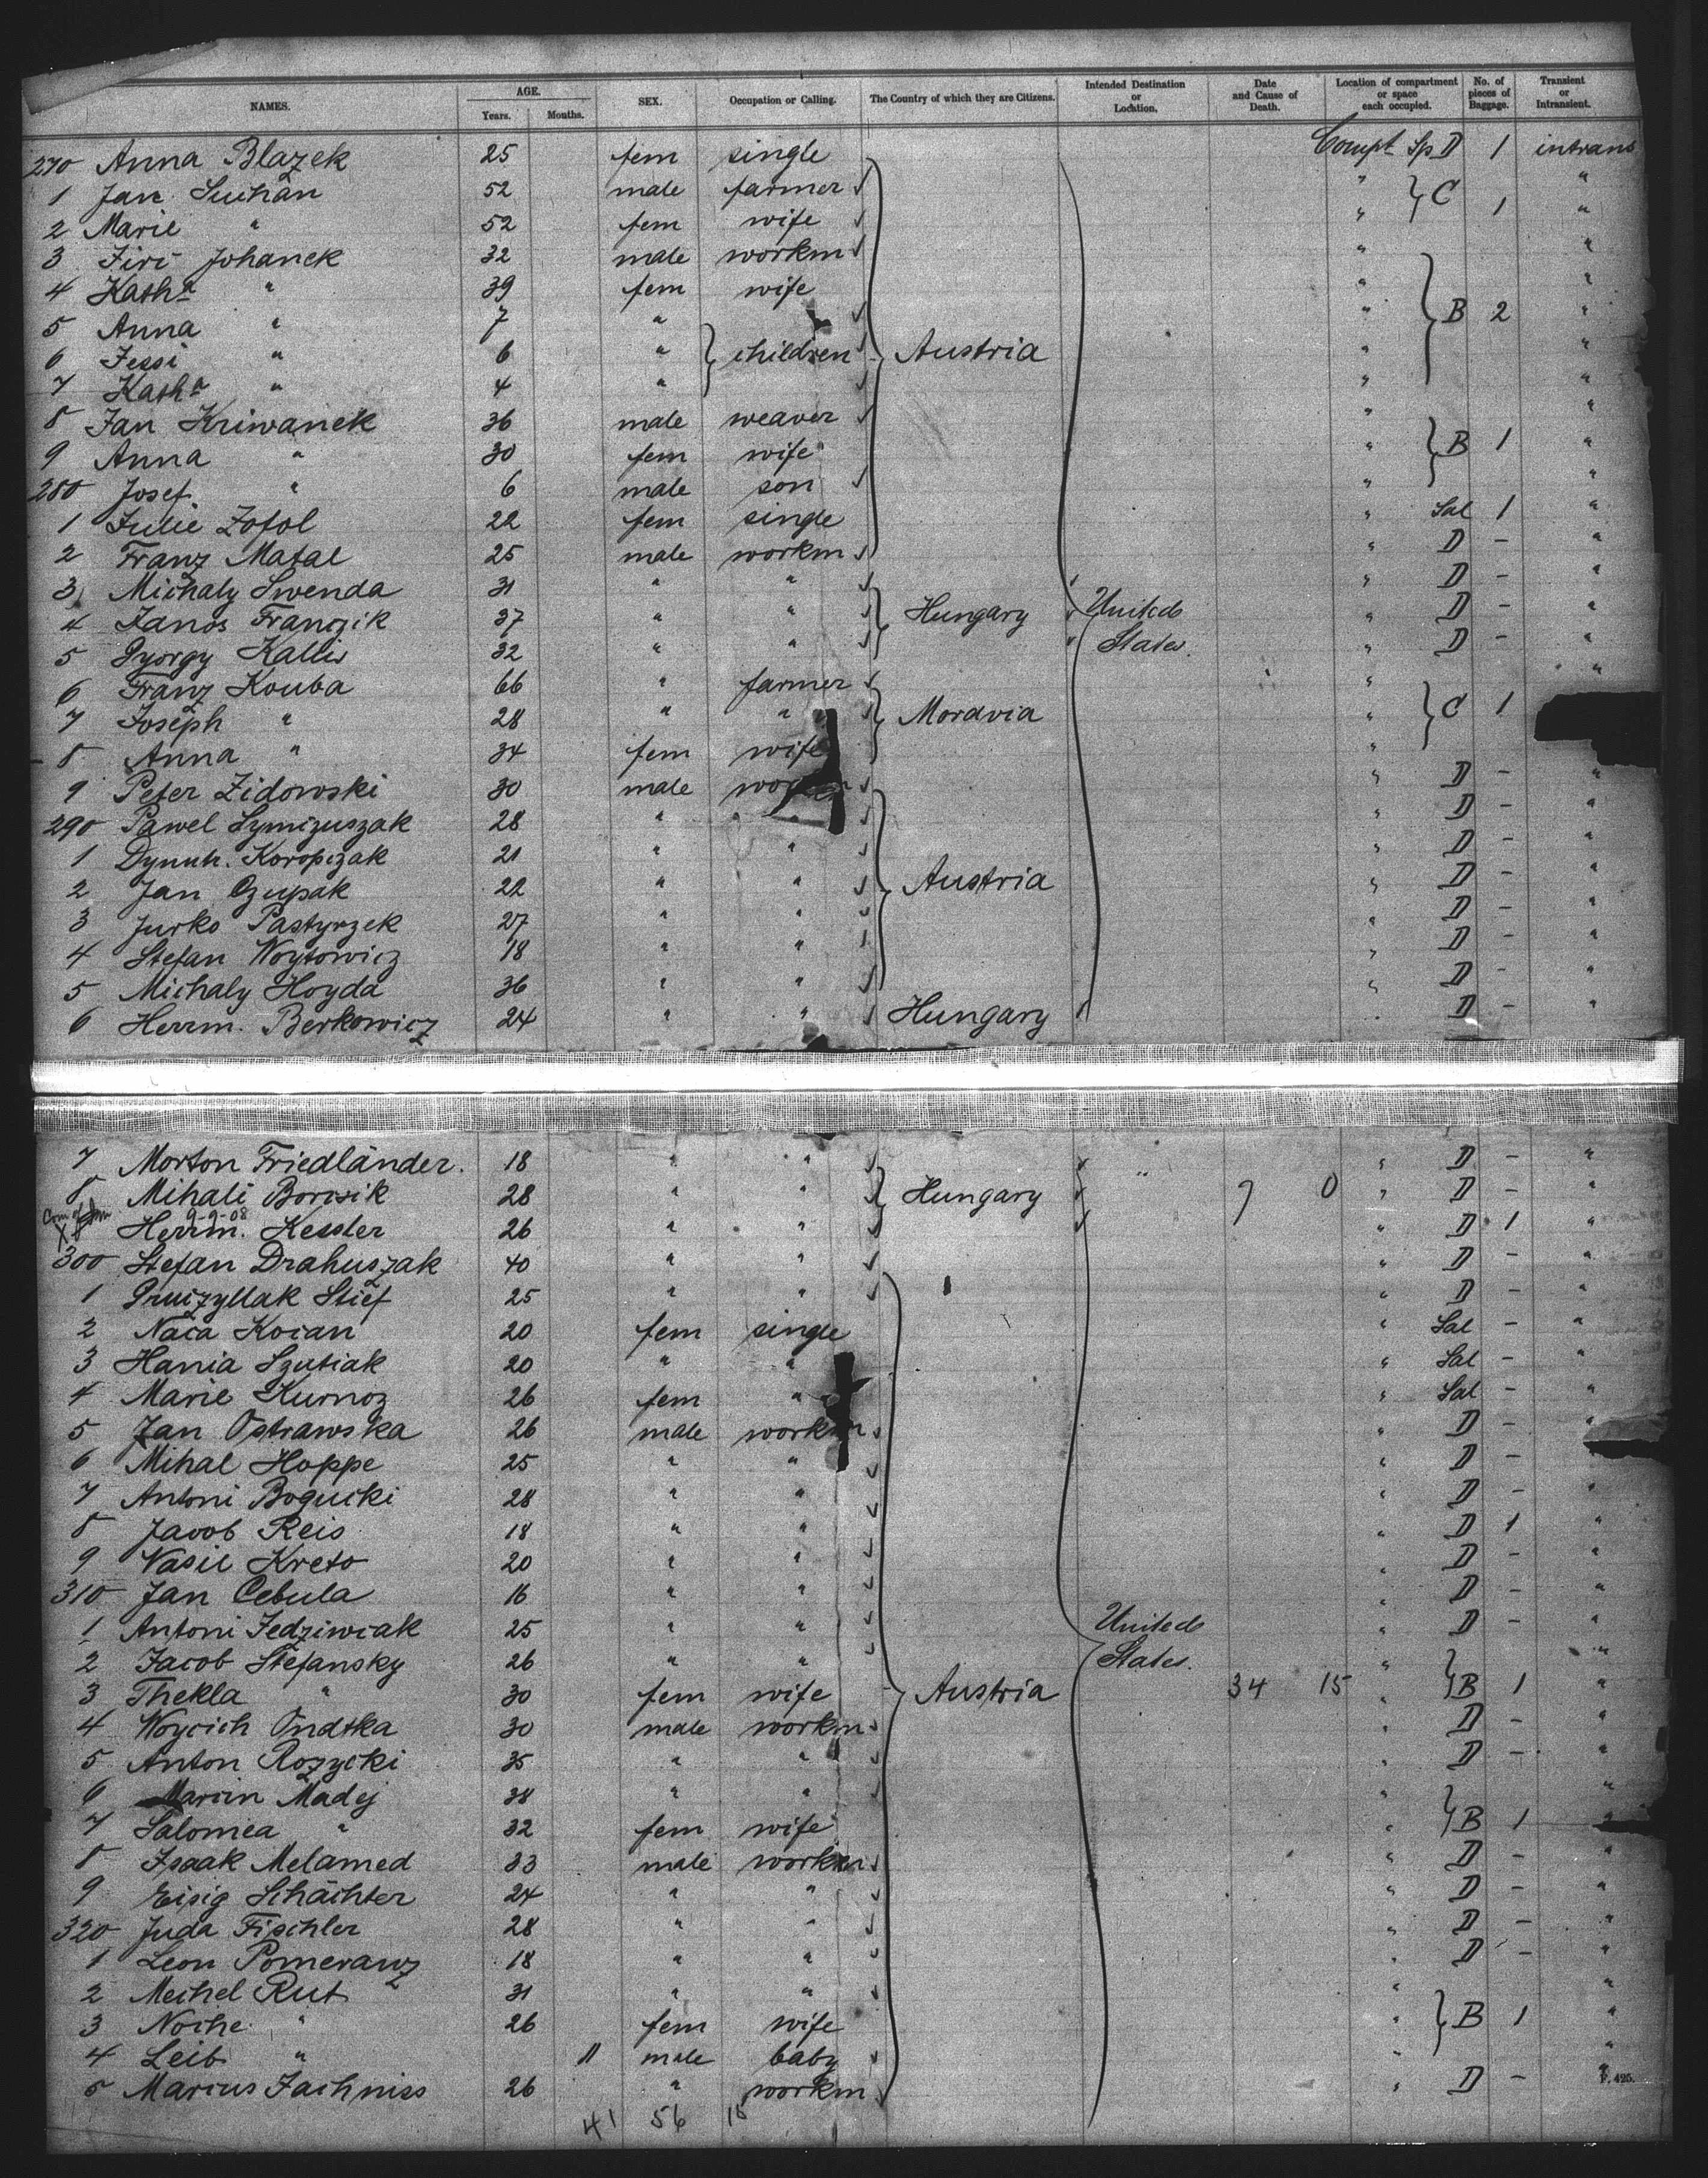 NAMES. AGE. Years. Months. SEX. Occupation or Calling. The Country of which they are Citizens. Intended Destination or Location. Date and Cause of Death. Location of compartment or space each occupied. No. of pieces of Baggage. Transient or Intransient.
270 Anna Blazek 25 fem single Compt Sp D 1 intrans
1 Jan Suchan 52 male farmer " } C "
2 Marie " 52 fem wife " 1 "
3 Jiri Johanek 32 male workm " "
4 Kath.a " 39 fem wife " "
5 Anna " 7 " " } B 2 "
6 Jessi " 6 " } children Austria " "
7 Kath.a " 4 " " "
8 Jan Kriwanek 36 male weaver " "
9 Anna " 30 fem wife " } B 1 "
280 Josef " 6 male son " "
1 Julie Zofol 22 fem single " Sal 1 "
2 Franz Matal 25 male workm " D - "
3 Michaly Swenda 31 " " " D - "
4 Janos Franczik 37 " " Hungary United " D - "
5 Gyorgy Kallis 32 " " States. " D - "
6 Franz Kouba 66 " farmer " "
7 Joseph " 28 " " Moravia " } C 1
8 Anna " 34 fem wife "
9 Peter Zidowski 30 male workm " D - "
290 Pawel Symizuszak 28 " " " D - "
1 Dymtr. Koropczak 21 " " " D - "
2 Jan Czupak 22 " " Austria " D - "
3 Jurko Pastyrzek 27 " " " D - "
4 Stefan Woytowicz 18 " " " D - "
5 Michaly Hoyda 36 " " " D - "
6 Herrm. Berkowicz 24 " " Hungary D - "
7 Morton Friedländer. 18 " " " " D - "
8 Mihali Borcsik 28 " " Hungary 7 0 " D - "
9-9-08
Herrm. Kessler 26 " " " D 1 "
300 Stefan Drahuszak 40 " " " D - "
1 Pruczyllak Stief 25 " " " D - "
2 Naca Kocan 20 fem single " Sal - "
3 Hania Szutiak 20 " " " Sal - "
4 Marie Kurnoz 26 fem " " Sal - "
5 Jan Ostrawska 26 male workm " D - "
6 Mihal Hoppe 25 " " " D - "
7 Antoni Bogucki 28 " " " D - "
8 Jacob Reis 18 " " " D 1 "
9 Vasil Kreto 20 " " " D - "
310 Jan Cebula 16 " " " D - "
1 Antoni Jedziwiak 25 " " United " D - "
2 Jacob Stefansky 26 " " States. " "
3 Thekla " 30 fem wife Austria 34 15 " } B 1 "
4 Woycich Ondtka 30 male workm " D - "
5 Anton Rozycki 35 " " " D - "
6 Marcin Madej 38 " " " "
7 Salomea " 32 fem wife " } B 1 "
8 Isaak Melamed 33 male workm " D - "
9 Eisig Schächter 24 " " " D - "
320 Juda Fischler 28 " " " D - "
1 Leon Pomeranz 18 " " " D - "
2 Mechel Rut 31 " " " "
3 Noche " 26 fem wife " } B 1 "
4 Leib " 11 male baby " "
5 Marcus Jachniss 26 " workm " D - "
41 56 15
F. 495.